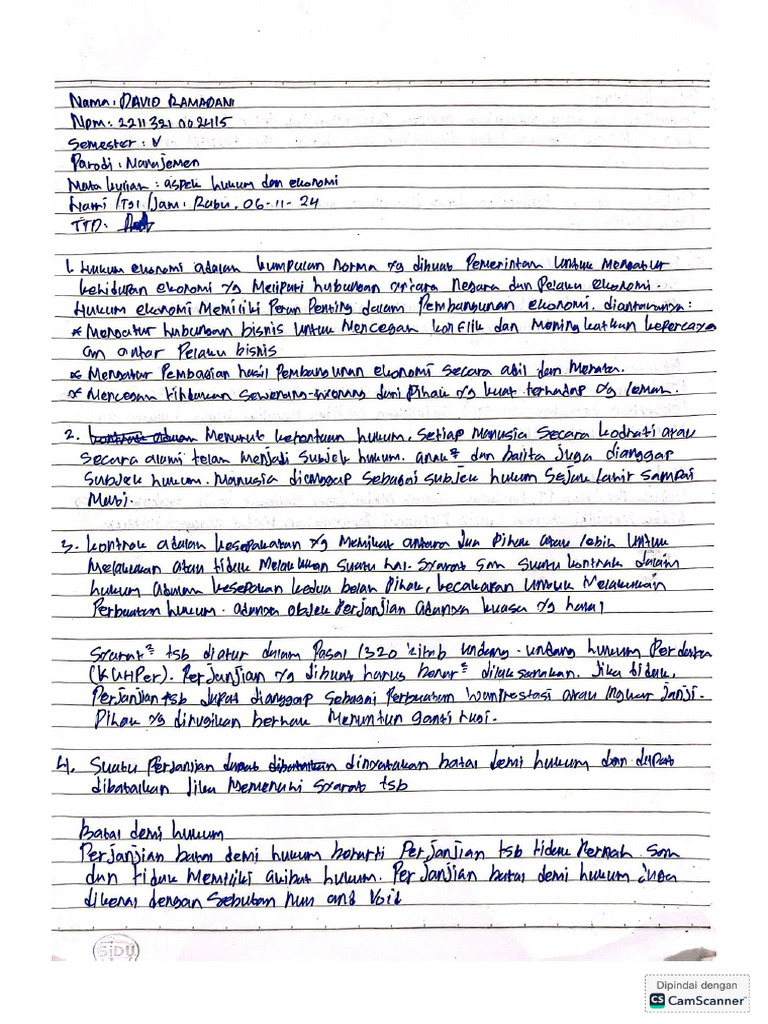 Nama : DAVID RAMADANI
Npm : 2211321002415
Semester : V
Parodi : Manajemen
Mata kuliah : aspek hukum dan ekonomi
Harri /TGl /Jam : Rabu, 06-11-24
TTD :
1. Hukum ekonomi adalah kumpulan norma yg dibuat Pemerintah untuk mengatur
kehidupan ekonomi yg Meliputi hubungan antara Negara dan Pelaku ekonomi.
Hukum ekonomi Memiliki Peran Penting dalam Pembangunan ekonomi, diantaranya :
* Mengatur hubungan bisnis untuk Mencegah konflik dan Meningkatkan kepercaya
an antar Pelaku bisnis
* Mengatur Pembagian hasil Pembangunan ekonomi secara adil dan Merata.
* Mencegah tindakan sewenang-wenang dari Pihak yg kuat terhadap yg lemah.
2. Menurut ketentuan hukum, setiap Manusia secara kodrati atau
secara alami telah Menjadi subjek hukum. anak² dan balita juga dianggap
subjek hukum. Manusia dianggap sebagai subjek hukum sejak lahir sampai
Mati.
3. kontrak adalah kesepakatan yg Mengikat antara dua Pihak atau lebih untuk
Melakukan atau tidak Melakukan suatu hal. Syarat sah suatu kontrak dalam
hukum adalah kesepakan kedua belah Pihak, kecakapan untuk Melakukan
Perbuatan hukum. adanya objek Perjanjian adanya kuasa yg halal
Syarat² tsb diatur dalam Pasal 1320 kitab undang-undang hukum Perdata
(KUHPer). Perjanjian yg dibuat harus benar² dilaksanakan. Jika tidak,
Perjanjian tsb dapat dianggap sebagai Perbuatan wanprestasi atau Ingkar janji.
Pihak yg dirugikan berhak Menuntun ganti rugi.
4. Suatu Perjanjian dapat dibatalkan dinyatakan batal demi hukum dan dapat
dibatalkan Jika Memenuhi syarat tsb
Batal demi hukum
Perjanjian batal demi hukum berarti Perjanjian tsb tidak Pernah sah
dan tidak Memiliki akibat hukum. Perjanjian batal demi hukum juga
dikenal dengan sebutan Null and Void
SiDU
Dipindai dengan
CS CamScanner